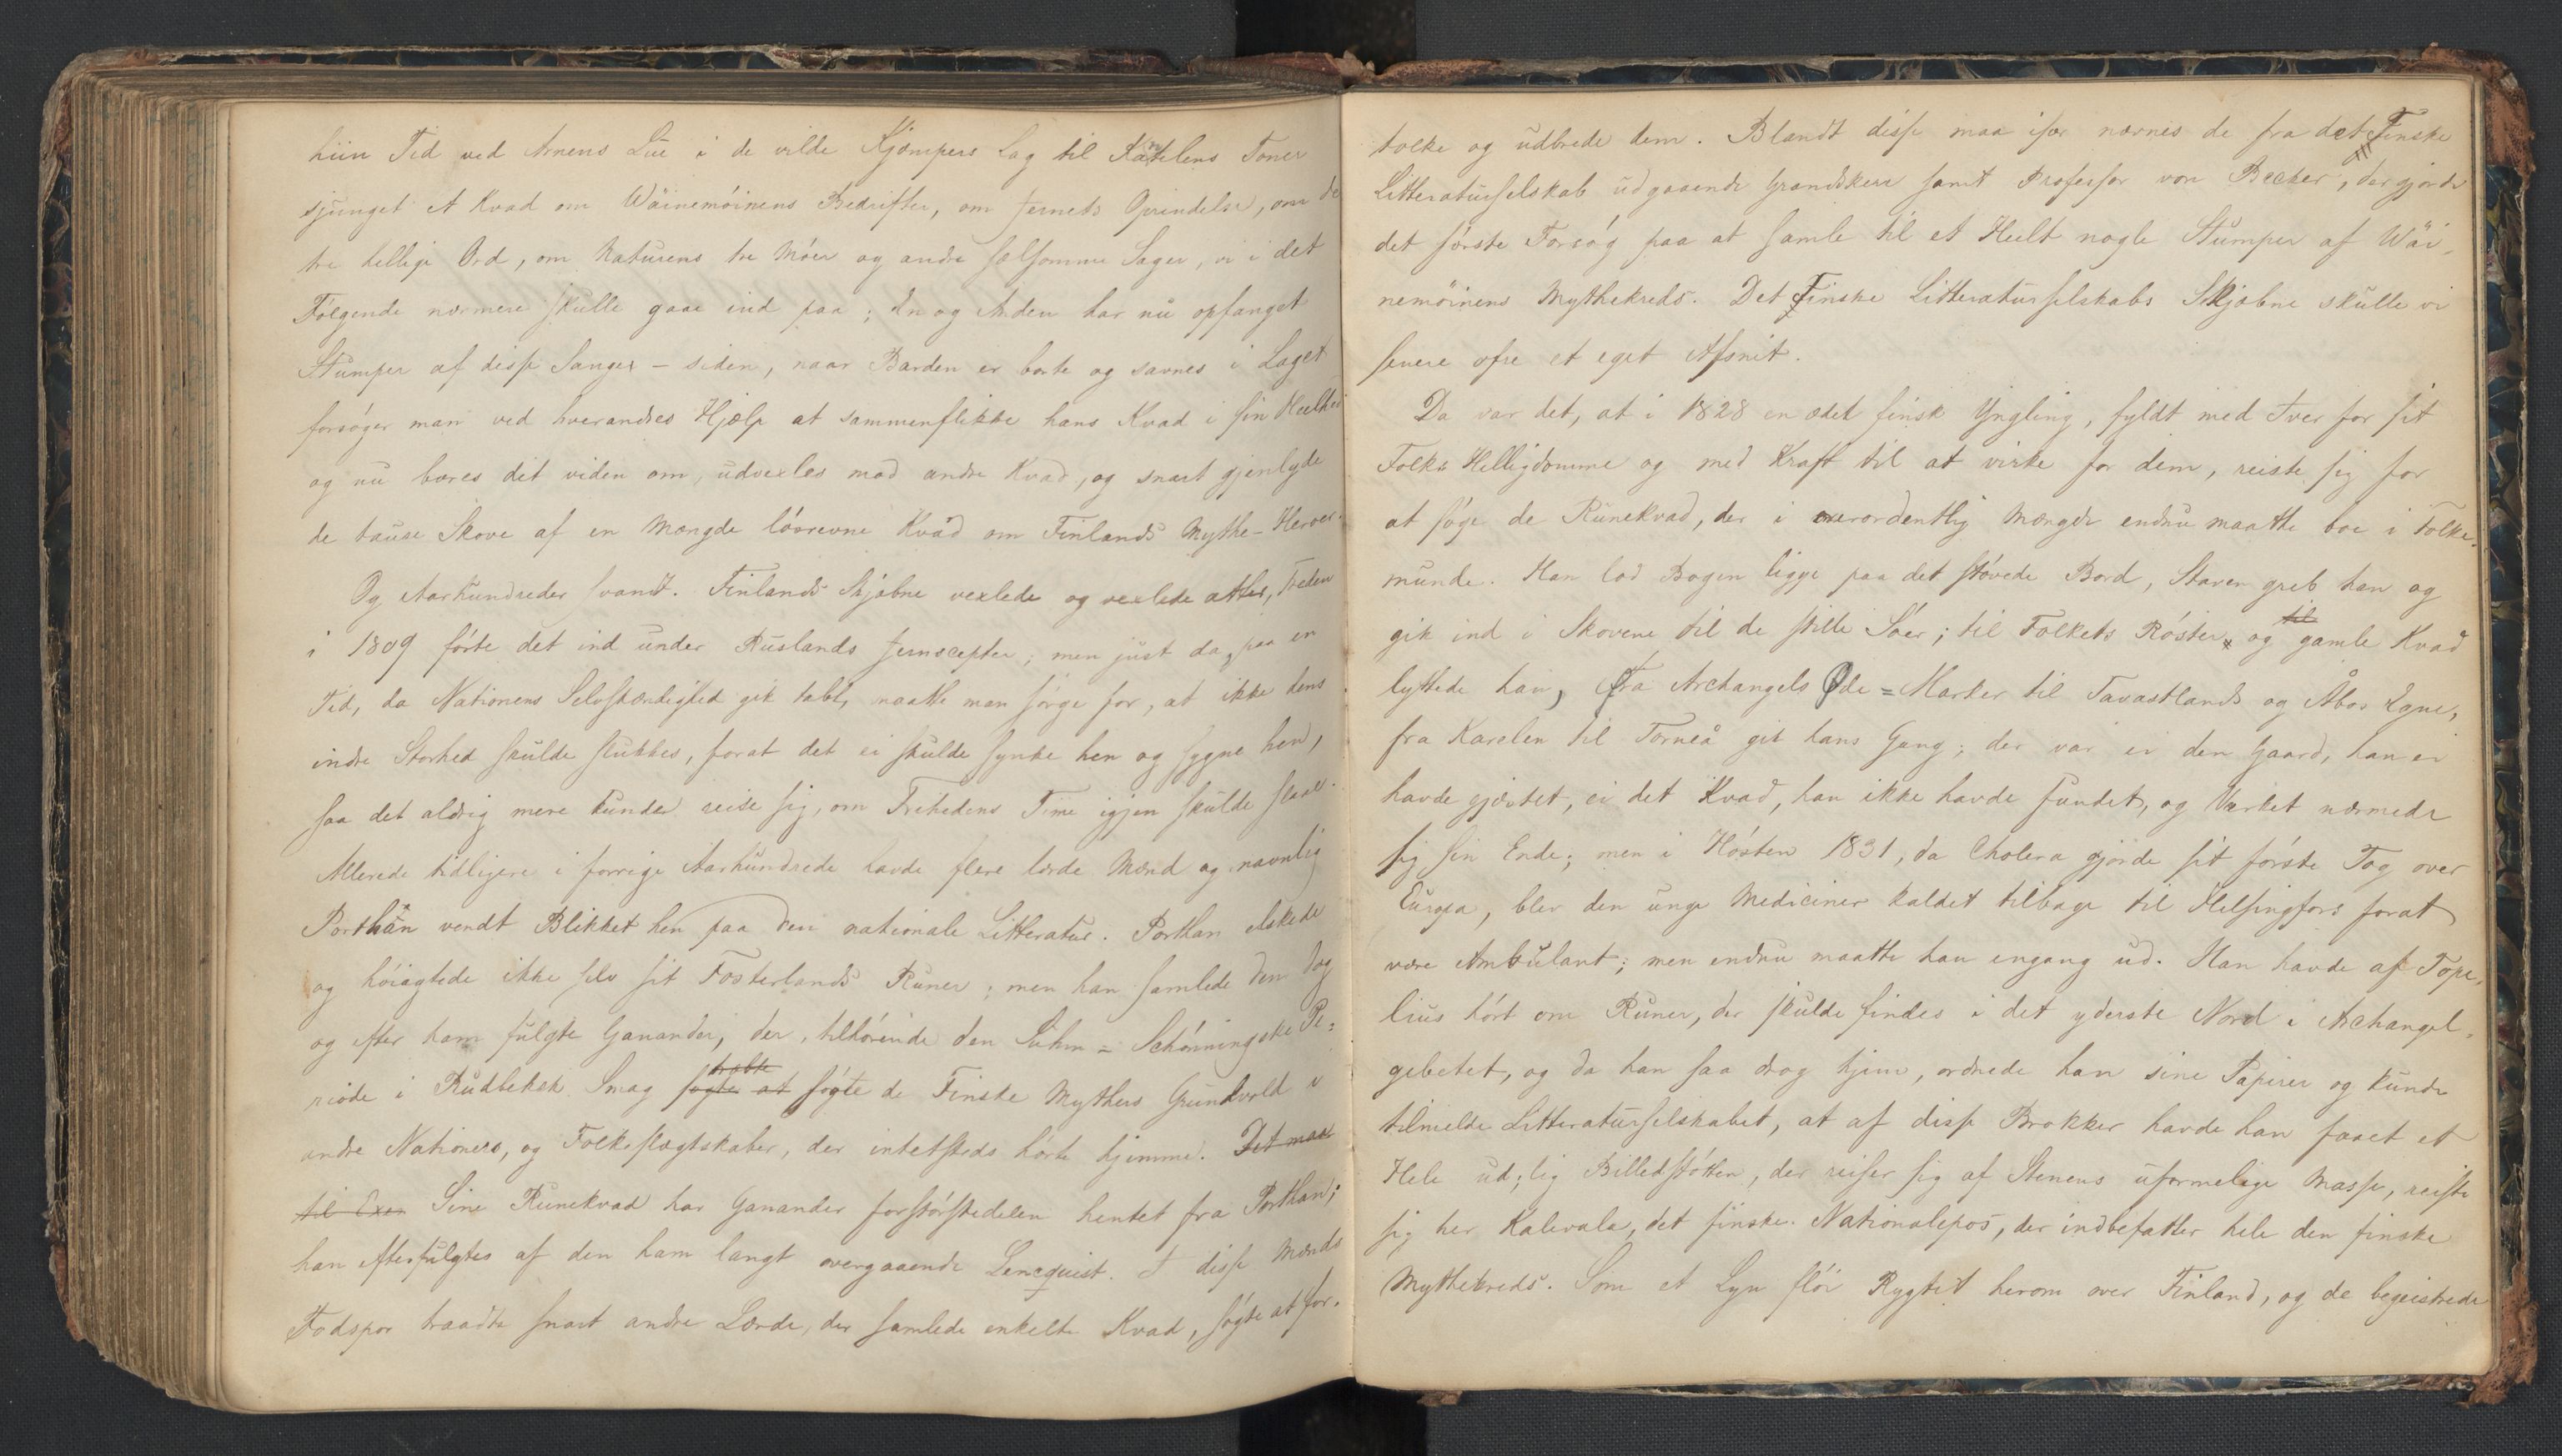 hiin Tid ved Arnens Lue i de vilde Kjæmpers Lag til Kantelens Toner
sjunget et Kvad om Wäinemöinens Bedrifter, om Jernets Oprindelse, om de
tre hellige Ord, om Naturens tre Möer og andre sælsomme Sager, vi i det
Fölgende nærmere skulle gaae ind paa; En og Anden har nu opfanget
Stumper af disse Sange – siden, naar Barden er borte og savnes i Laget
forsöger man ved hverandres Hjælp at sammenflikke hans Kvad i sin Heelhed
og nu bæres det viden om, udvexles mod andre Kvad, og snart gjenlyde
de tause Skove af en Mængde lösrevne Kvad om Finlands Mythe-Heroer.
Og Aarhundreder svandt. Finlands Skjæbne vexlede og vexlede atter, Freden
i 1809 förte det ind under Ruslands Jernscepter; men just da, paa en
Tid, da Nationens Selvstændighed gik tabt, maatte man sörge for, at ikke dens
indre Storhed skulde slukkes, forat det ei skulde synke hen og sygne hen,
saa det aldrig mere kunde reise sig, om Frihedens Time igjen skulde slaae.
Allerede tidligere i forrige Aarhundrede havde flere lærde Mænd og navnlig
Porthan vendt Blikket hen paa den nationale Litteratur. Porthan elskede
og höiagtede ikke selv sit Fosterlands Runer; men han samlede dem dog
og efter ham fulgte Ganander, der, tilhörende den Suhm=Schönningske Pe=
riode i Rudbeksk Smag søgte at trabte søgte de Finske Mythers Grundvold i
andre Nationers, og Folkeslægtskaber, der intetsteds hörte hjemme. Det maae
til Exem Sine Runekvad har Ganander forstörstedelen hentet fra Porthan;
han efterfulgtes af den ham langt overgaaende Lencquist. I disse Mænds
Fodspor traadte snart andre Lærde, der samlede enkelte Kvad, sögte at for-
tolke og udbrede dem. Blandt disse maa især nævnes de fra det Finske
Litteraturselskab udgaaende Grandskere samt Professor von Becker, der gjorde
det förste Forsög paa at samle til et Heelt nogle Stumper af Wäi-
nemöinens Mythekreds. Det Finske Litteraturselskabs Skjæbne skulle vi
senere ofre et eget Afsnit.
Da var det, at i 1828 en ædel finsk Yngling, fyldt med Iver for sit
Folks Helligdomme og med Kraft til at virke for dem, reiste sig for
at söge de Runekvad, der i overordentlig Mængde endnu maatte boe i Folke-
munde. Han lod Bogen ligge paa det stövede Bord, Staven greb han og
gik ind i Skovene til de stille Söer; til Folkets Röster og til gamle Kvad
lyttede han, fra Archangels Øde=Marker til Tavastlands og Åbos Egne,
fra Karelen til Torneå gik hans Gang; der var ei den Gaard, han ei
havde gjæstet, ei det Kvad, han ikke havde fundet, og Værket nærmede
sig sin Ende; men i Hösten 1831, da Cholera gjorde sit förste Tog over
Europa, blev den unge Mediciner kaldet tilbage til Helsingfors forat
være Ambulant; men endnu maatte han engang ud. Han havde af Tope-
lius hört om Runer, der skulde findes i det yderste Nord i Archangel-
gebetet, og da han saa drog hjem, ordnede han sine Papirer og kunde
tilmelde Litteraturselskabet, at af disse Brokker havde han faaet et
Hele ud; lig Billedstötten, der reiser sig af Stenens uformelige Masse, reiste
sig her Kalevala, det finske Nationalepos, der indbefatter hele den finske
Mythekreds. Som et Lyn flöi Rygtet herom over Finland, og de begeistrede